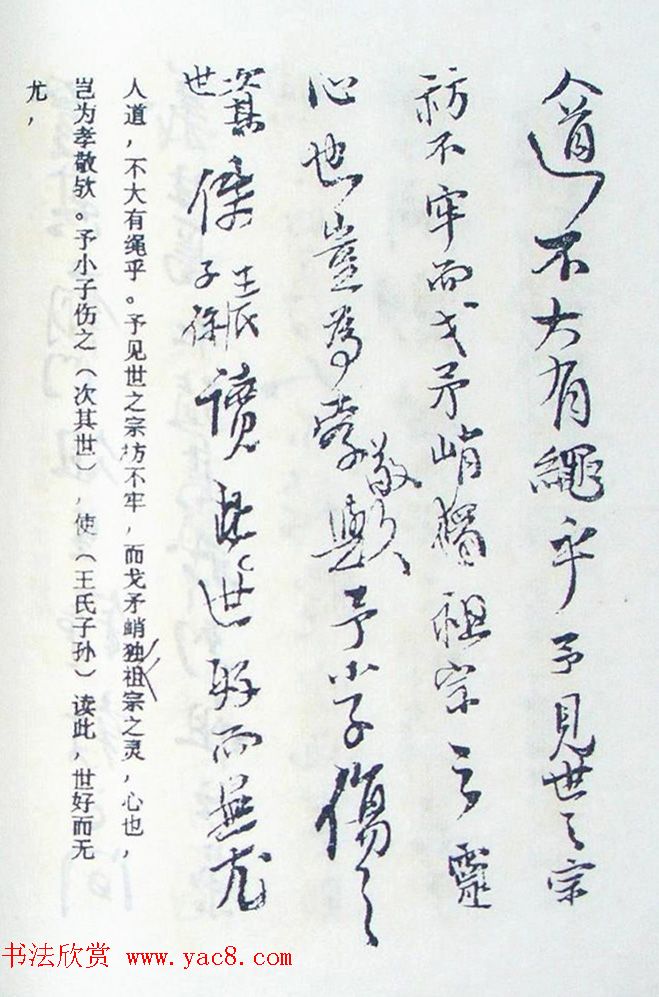 人道不大有繩乎予見世之宗
祊不牢而戈矛峭獨祖宗之靈
心也豈為孝敬歟予小子傷之
次其世使王氏子孫讀此世好而無尤
人道，不大有绳乎。予见世之宗坊不牢，而戈矛峭独祖宗之灵，心也，
岂为孝敬欤。予小子伤之（次其世），使（王氏子孙）读此，世好而无
尤，
书法欣赏 www.yac8.com